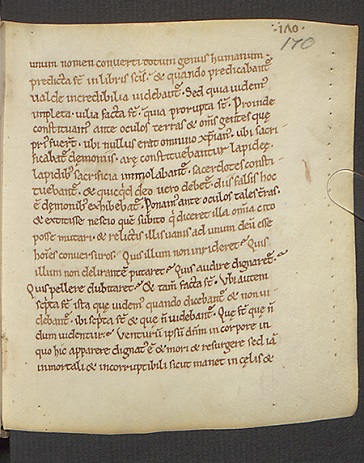 ·170·
170
unum nomen converti totum genus humanum·
predicta sť in libris scis· & quando predicabant̄
valde incredibilia videbant̄· Sed quia videmꝰ
impleta· vilia facta sť· quia prorupta sť· Proinde
constituam ante oculos terras & om̄s gentes quę
prꝰ fuer̄· ubi nullus erat omnino xp̄ianꝰ· ubi sacri
ficabat̄ demoniis· arę constituebantur lapideę·
lapidibꝰ sacrificia immolabant̄· sacerdotes consti
tuebant̄· & quicquid deo vero debet̄· diis falsis hoc
ē demonibꝰ exhibebat̄· Ponam ante oculos tales t̄ras·
& extitisse nescio quē subito q̇ diceret illa om̄ia cito
posse mutari· & relictis illis vanis ad unum deū esse
ho͞es conversuros· Quis illum non irrideret· Quis
illum non delirantē putaret· Quis audire dignaret̄·
Quis pellere dubitaret· & tam̄ facta sť· Ubi autem
scripta sť ista quę videmꝰ quando dicebant̄ & non vi
debant̄· ibi scripta sť & que n̄ videbant̄· Quę sť que n̄
dum videntur· Venturū ipsū dn̄m in corpore in
quo hic apparere dignatꝰ ē & mori & resurgere sed iā
inmortali & incorruptibili sicut manet in cęlis &